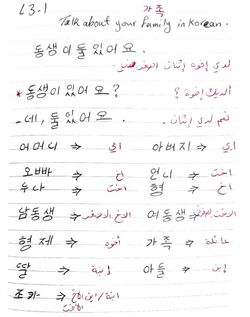 L3-1 가족
Talk about your family in Korean.
동생이 둘 있어요.
لدي إخوة إثنان اصغر مني
* 동생이 있어요? ألديك إخوة؟
- 네, 둘 있어요. نعم لدي إثنان.
어머니 => امي 아버지 => ابي
오빠 => اخ 언니 => اخت
누나 => اخت 형 => اخ
남동생 => الاخ الاصغر 여동생 => الاخت الصغرى
형제 => أخوه 가족 => عائلة
딸 => إبنة 아들 => إبن
조카 => ابنة/ابن الأخ
الأخت